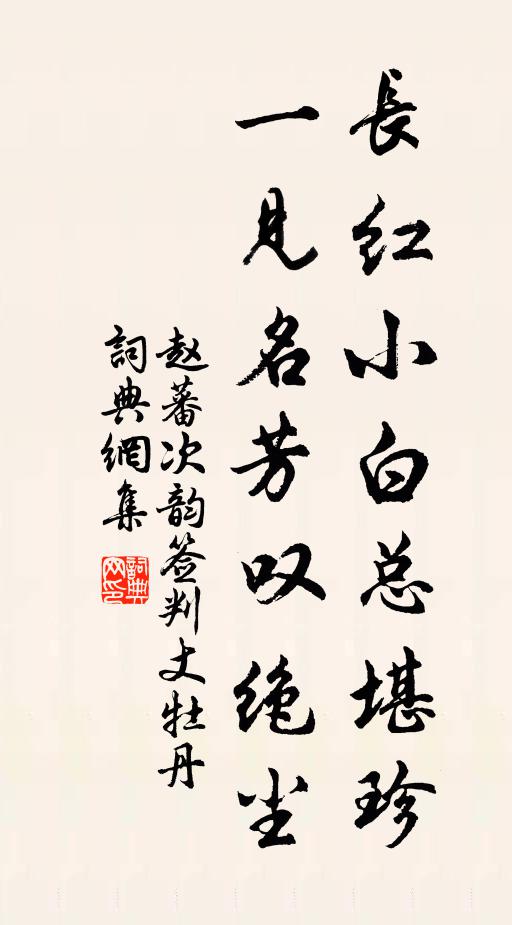 長红小白总堪珍
一見名芳叹绝尘
赵蕃次韵签判丈牡丹
詞典網集
詞典网印